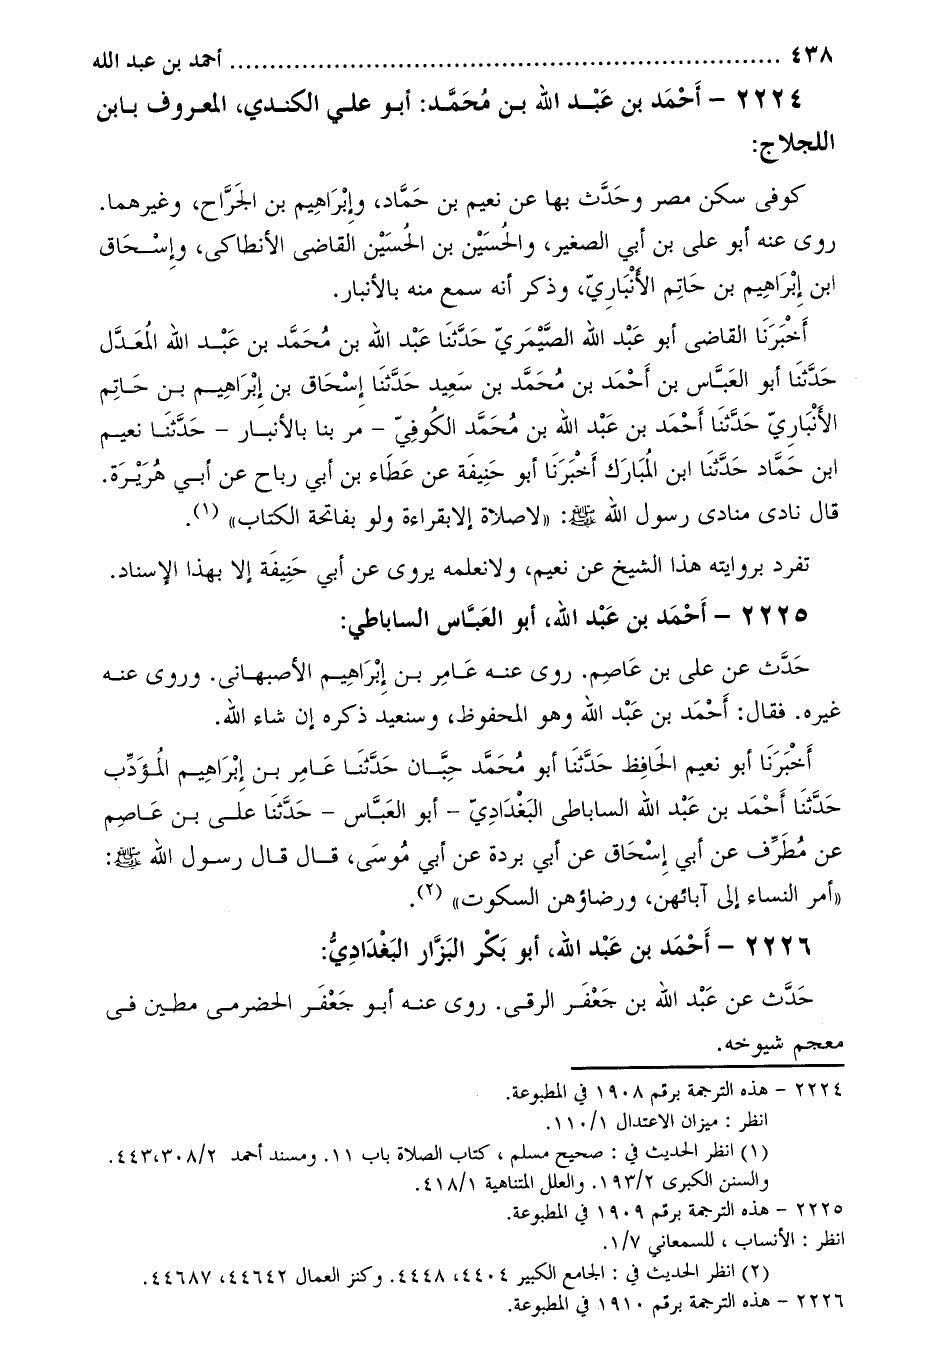 ٤٣٨ ................................................................ أحمد بن عبد الله
٢٢٢٤ – أَحْمَد بن عَبْد الله بن مُحَمَّد: أبو علي الكندي، المعروف بابن
اللجلاج:
كوفى سكن مصر وحَدَّث بها عن نعيم بن حَمَّاد، وإبْرَاهِيم بن الجَرَّاح، وغيرهما.
روى عنه أبو على بن أبي الصغير، والحُسَيْن بن الحُسَيْن القاضى الأنطاكى، وإسْحَاق
ابن إبْرَاهِيم بن حَاتِم الأَنْبَارِيّ، وذكر أنه سمع منه بالأنبار.
أَخْبَرَنَا القاضى أبو عَبْد الله الصَّيْمَرِيّ حَدَّثَنَا عَبْد الله بن مُحَمَّد بن عَبْد الله المُعَدَّل
حَدَّثَنَا أبو العَبَّاس بن أَحْمَد بن مُحَمَّد بن سَعِيد حَدَّثَنَا إسْحَاق بن إبْرَاهِيم بن حَاتِم
الأَنْبَارِيّ حَدَّثَنَا أَحْمَد بن عَبْد الله بن مُحَمَّد الكُوفِيّ – مر بنا بالأنبار – حَدَّثَنَا نعيم
ابن حَمَّاد حَدَّثَنَا ابن المُبَارَك أَخْبَرَنَا أبو حَنِيفَة عن عَطَاء بن أبي رباح عن أبي هُرَيْرَة.
قال نادى منادى رسول الله ﷺ: «لاصلاة إلابقراءة ولو بفاتحة الكتاب» (١).
تفرد بروايته هذا الشيخ عن نعيم، ولانعلمه يروى عن أبي حَنِيفَة إلا بهذا الإسناد.
٢٢٢٥ – أَحْمَد بن عَبْد الله، أبو العَبَّاس الساباطي:
حَدَّث عن على بن عَاصِم. روى عنه عَامِر بن إبْرَاهِيم الأصبهانى. وروى عنه
غيره. فقال: أَحْمَد بن عَبْد الله وهو المحفوظ، وسنعيد ذكره إن شاء الله.
أَخْبَرَنَا أبو نعيم الحَافِظ حَدَّثَنَا أبو مُحَمَّد حِبَّان حَدَّثَنَا عَامِر بن إبْرَاهِيم المُؤَدِّب
حَدَّثَنَا أَحْمَد بن عَبْد الله الساباطى البَغْدَادِيّ – أبو العَبَّاس – حَدَّثَنَا على بن عَاصِم
عن مُطَرِّف عن أبي إسْحَاق عن أبي بردة عن أبي مُوسَى، قال قال رسول الله ﷺ:
«أمر النساء إلى آبائهن، ورضاؤهن السكوت» (٢).
٢٢٢٦ – أَحْمَد بن عَبْد الله، أبو بَكْر البَزَّار البَغْدَادِيُّ:
حَدَّث عن عَبْد الله بن جَعْفَر الرقى. روى عنه أبو جَعْفَر الحضرمى مطين فى
معجم شيوخه.
٢٢٢٤ – هذه الترجمة برقم ١٩٠٨ في المطبوعة.
انظر : ميزان الاعتدال ١١٠/١.
(١) انظر الحديث في : صحيح مسلم ، كتاب الصلاة باب ١١. ومسند أحمد ٤٤٣،٣٠٨/٢.
والسنن الكبرى ١٩٣/٢. والعلل المتناهية ٤١٨/١.
٢٢٢٥ – هذه الترجمة برقم ١٩٠٩ في المطبوعة.
انظر : الأنساب ، للسمعاني ١/٧.
(٢) انظر الحديث في : الجامع الكبير ٤٤٠٤، ٤٤٤٨. وكنز العمال ٤٤٦٤٢، ٤٤٦٨٧.
٢٢٢٦ – هذه الترجمة برقم ١٩١٠ في المطبوعة.